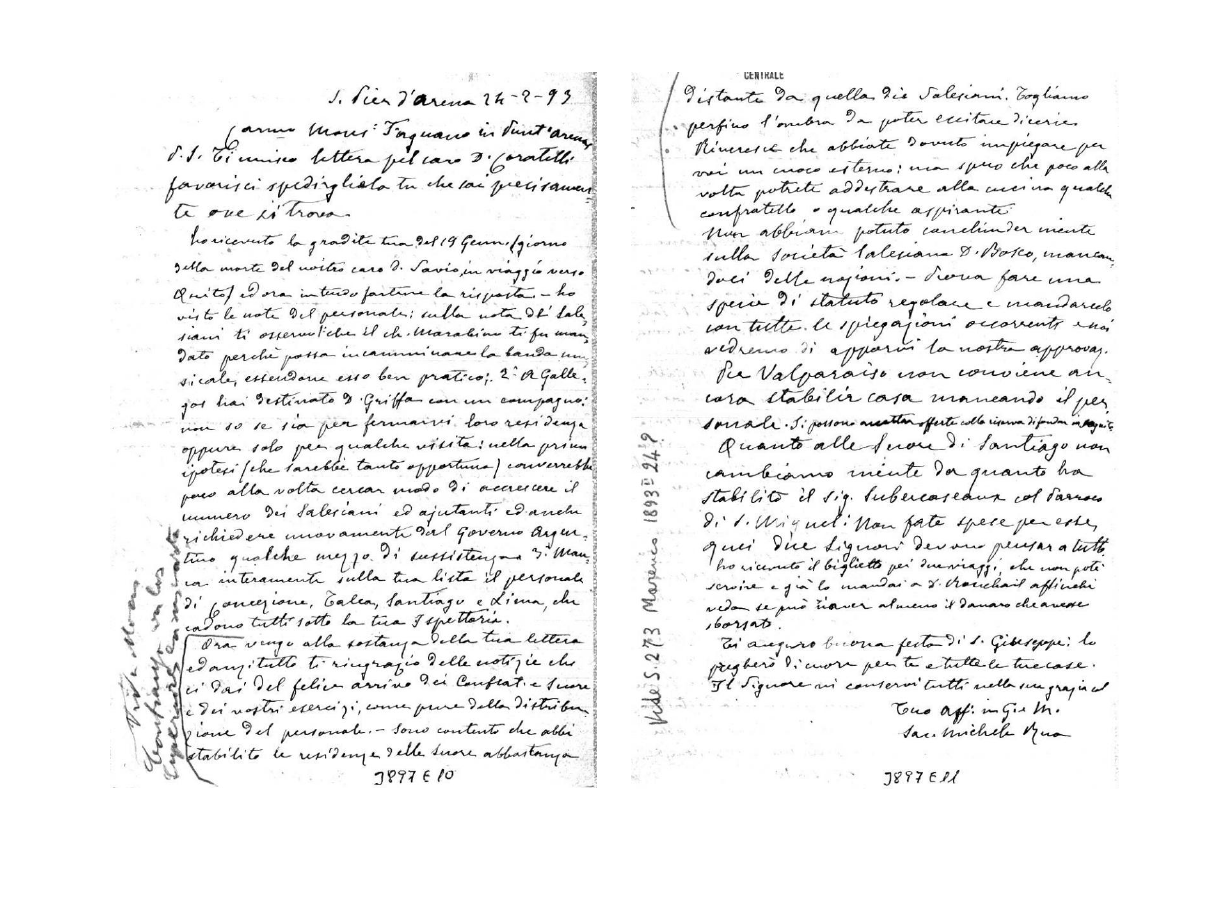 S. Pier d'arena 24-2-93
Carmo Mons.r Fagnano in Punt'arenas
P.S. Ti unisco lettera pel caro D. Coratelli
favorisci spedirgliela tu che sai precisamen-
te ove si trova.
Ho ricevuto la gradita tua del 19 Genn. (giorno
della morte del nostro caro D. Savio, in viaggio verso
Quito) ed ora intendo fartene la risposta - ho
visto le note del personale; sulla nota dei Sale-
siani ti osservo che il ch. Marabino ti fu man-
dato perchè possa incamminare la banda mu-
sicale, essendone esso ben pratico; 2.° A Galle-
gos hai destinato D. Griffa con un compagno:
non so se sia per fermarvi loro residenza
oppure solo per qualche visita: nella prima
ipotesi (che sarebbe tanto opportuna) converrebbe
poco alla volta cercar modo di accrescere il
numero dei Salesiani ed ajutanti ed anche
richiedere nuovamente dal Governo Argen-
tino qualche mezzo di sussistenza 3.° Man-
ca interamente sulla tua lista il personale
di Concezione, Talca, Santiago e Lima, che
cadono tutti sotto la tua Ispettoria.
Ora vengo alla sostanza della tua lettera
ed anzitutto ti ringrazio delle notizie che
ci dai del felice arrivo dei Confrat. e Suore
e dei vostri esercizi, come pure della distribu-
zione del personale. - Sono contento che abbi
stabilito le residenze delle Suore abbastanza
J897 E 10
CENTRALE
distante da quella dei Salesiani. Togliamo
perfino l'ombra da poter eccitare dicerie
Rincresce che abbiate dovuto impiegare per
voi un cuoco esterno: ma spero che poco alla
volta potrete addestrare alla cucina qualche
confratello o qualche aspirante
Non abbiam potuto conchiuder niente
sulla Società Salesiana D. Bosco, mancan-
doci delle nozioni. - Prova fare una
specie di statuto regolare e mandarcelo
con tutte le spiegazioni occorrenti e noi
vedremo di apporvi la nostra approvaz.
Per Valparaiso non conviene an-
cora stabilir casa mancando il per-
sonale. Si possono accettar offerte colla riserva di fondar in seguito
Quanto alle Suore di Santiago non
cambiamo niente da quanto ha
stabilito il Sig. Subercaseaux col Parroco
di S. Miguel: Non fate spese per esse,
quei due Signori devono pensar a tutto.
Ho ricevuto il biglietto pei due viaggi, che non potè
servire e già lo mandai a D. Ronchail affinchè
veda se può riaver almeno il danaro che avesse
sborsato.
Ti auguro buona festa di S. Giuseppe: lo
pregherò di cuore per te e tutte le tue case.
Il Signore vi conservi tutti nella sua grazia ed
Tuo aff. in G. e M.
Sac. Michele Rua
J897 E 11
Vide S. 273 Marenco 1893 II 24 9